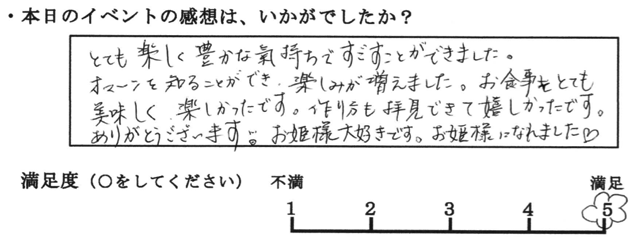 ・本日のイベントの感想は、いかがでしたか？
とても楽しく豊かな氣持ちですごすことができました。
オマーンを知ることができ、楽しみが増えました。お食事もとても
美味しく、楽しかったです。作り方も拝見できて嬉しかったです。
ありがとうございます。お姫様大好きです。お姫様になれました♡
満足度（○をしてください） 不満 満足
1 2 3 4 5